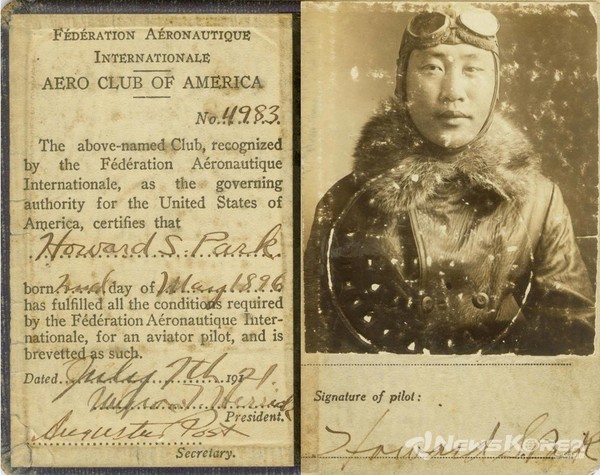 FÉDÉRATION AÉRONAUTIQUE
INTERNATIONALE
AERO CLUB OF AMERICA
No. 4983.
The above-named Club, recognized
by the Fédération Aéronautique
Internationale, as the governing
authority for the United States of
America, certifies that
Howard S. Park
born 2nd day of May 1896
has fulfilled all the conditions required
by the Fédération Aéronautique Inter-
nationale, for an aviator pilot, and is
brevetted as such.
Dated July 7th 1921
President.
Augustus Post
Secretary.
Signature of pilot:
Howard S. Park
NewsKorea